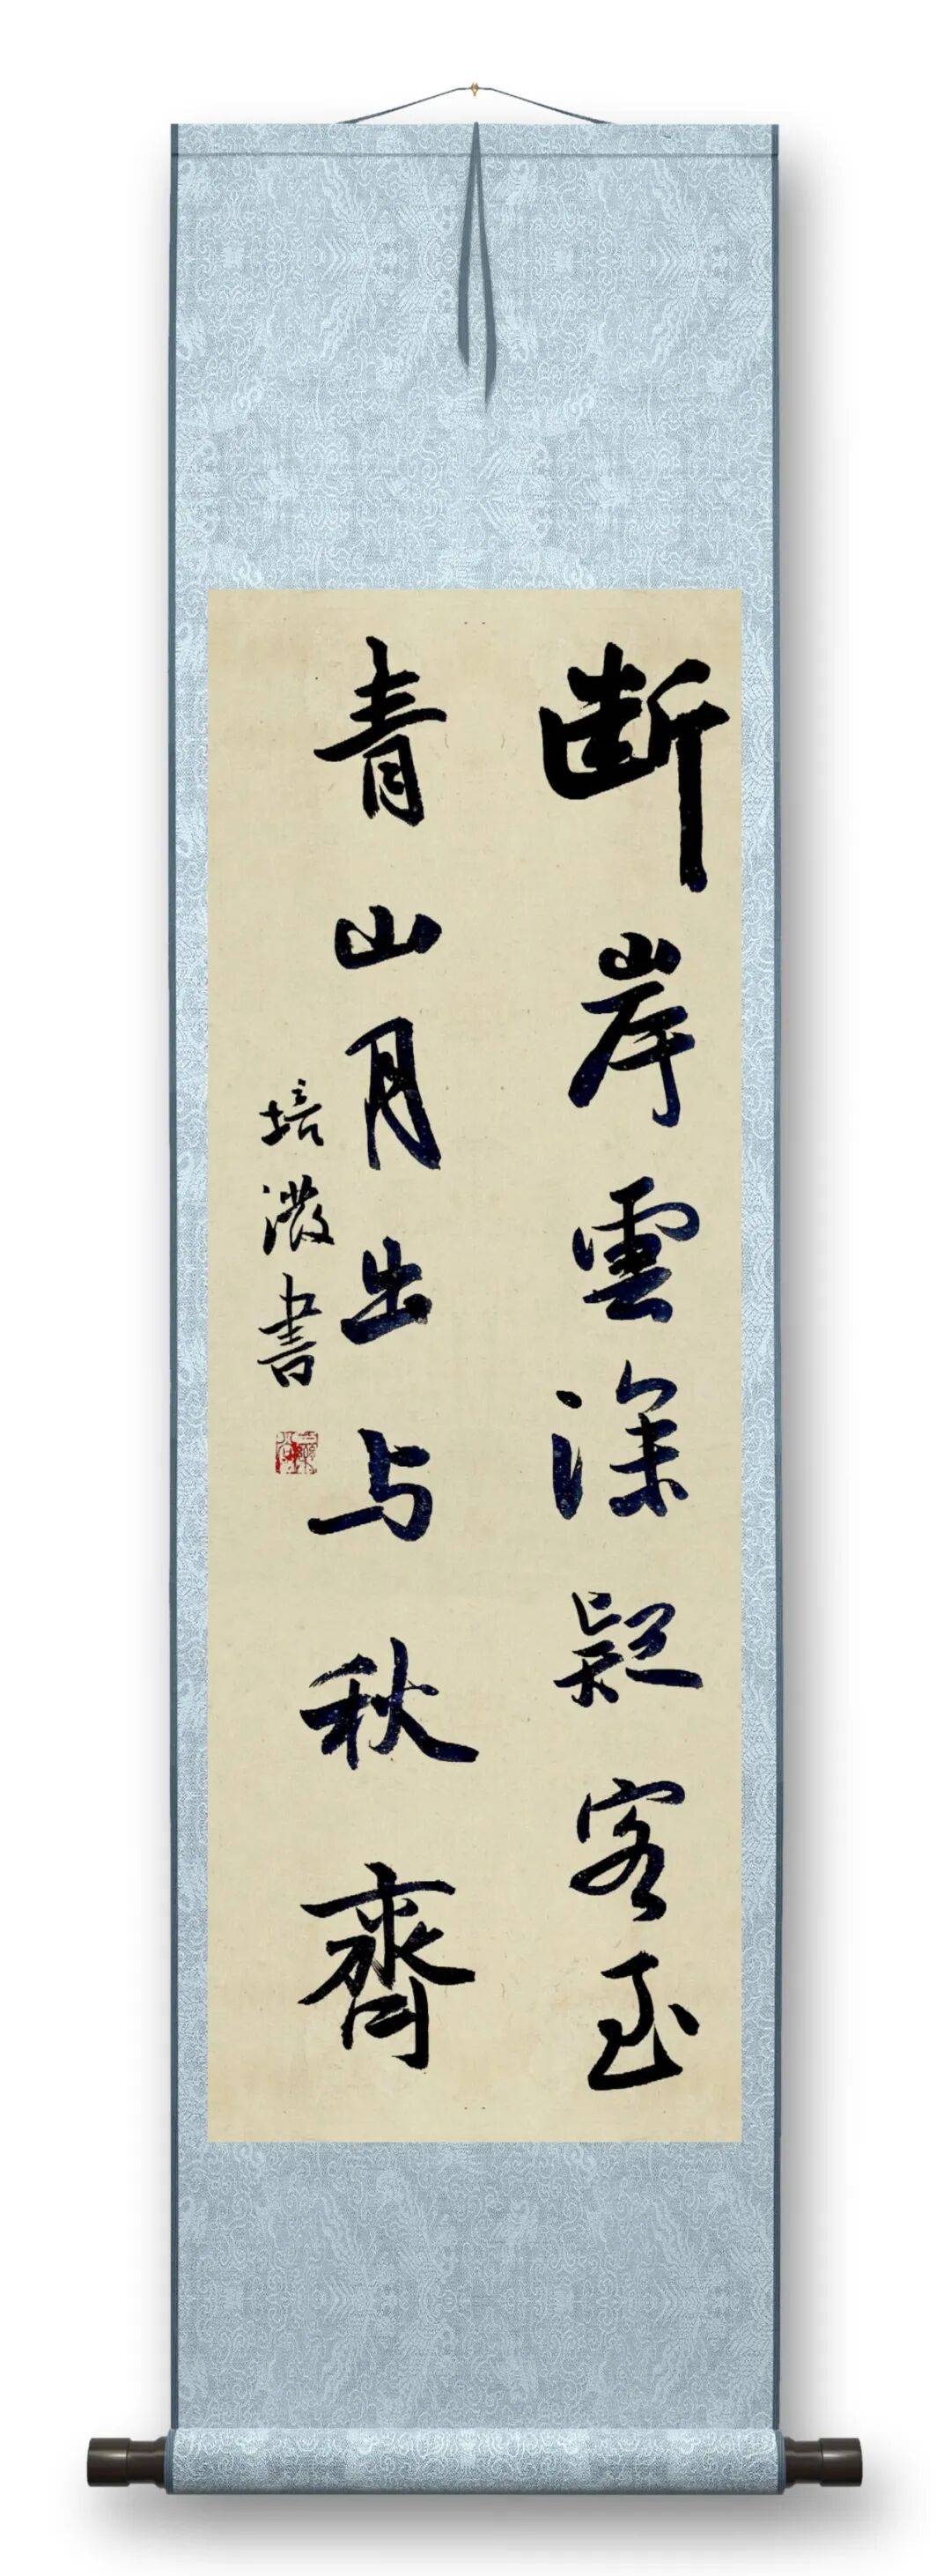 断岸雲深疑客至
青山月出与秋齊
培濃書